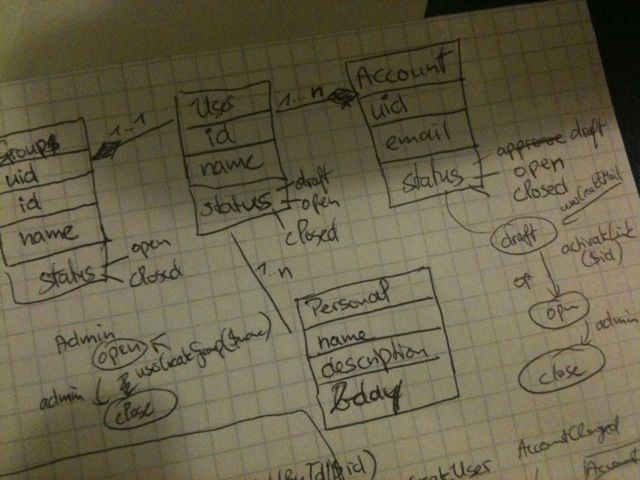 Groups
uid
id
name
status
open
closed
1...1
User
id
name
status
draft
open
closed
1...n
Account
uid
email
status
draft
open
closed
1..n
Personal
name
description
Bday
draft
activateLink
($id)
open
admin
close
Admin
open
admin
close
AccountChanged
Account